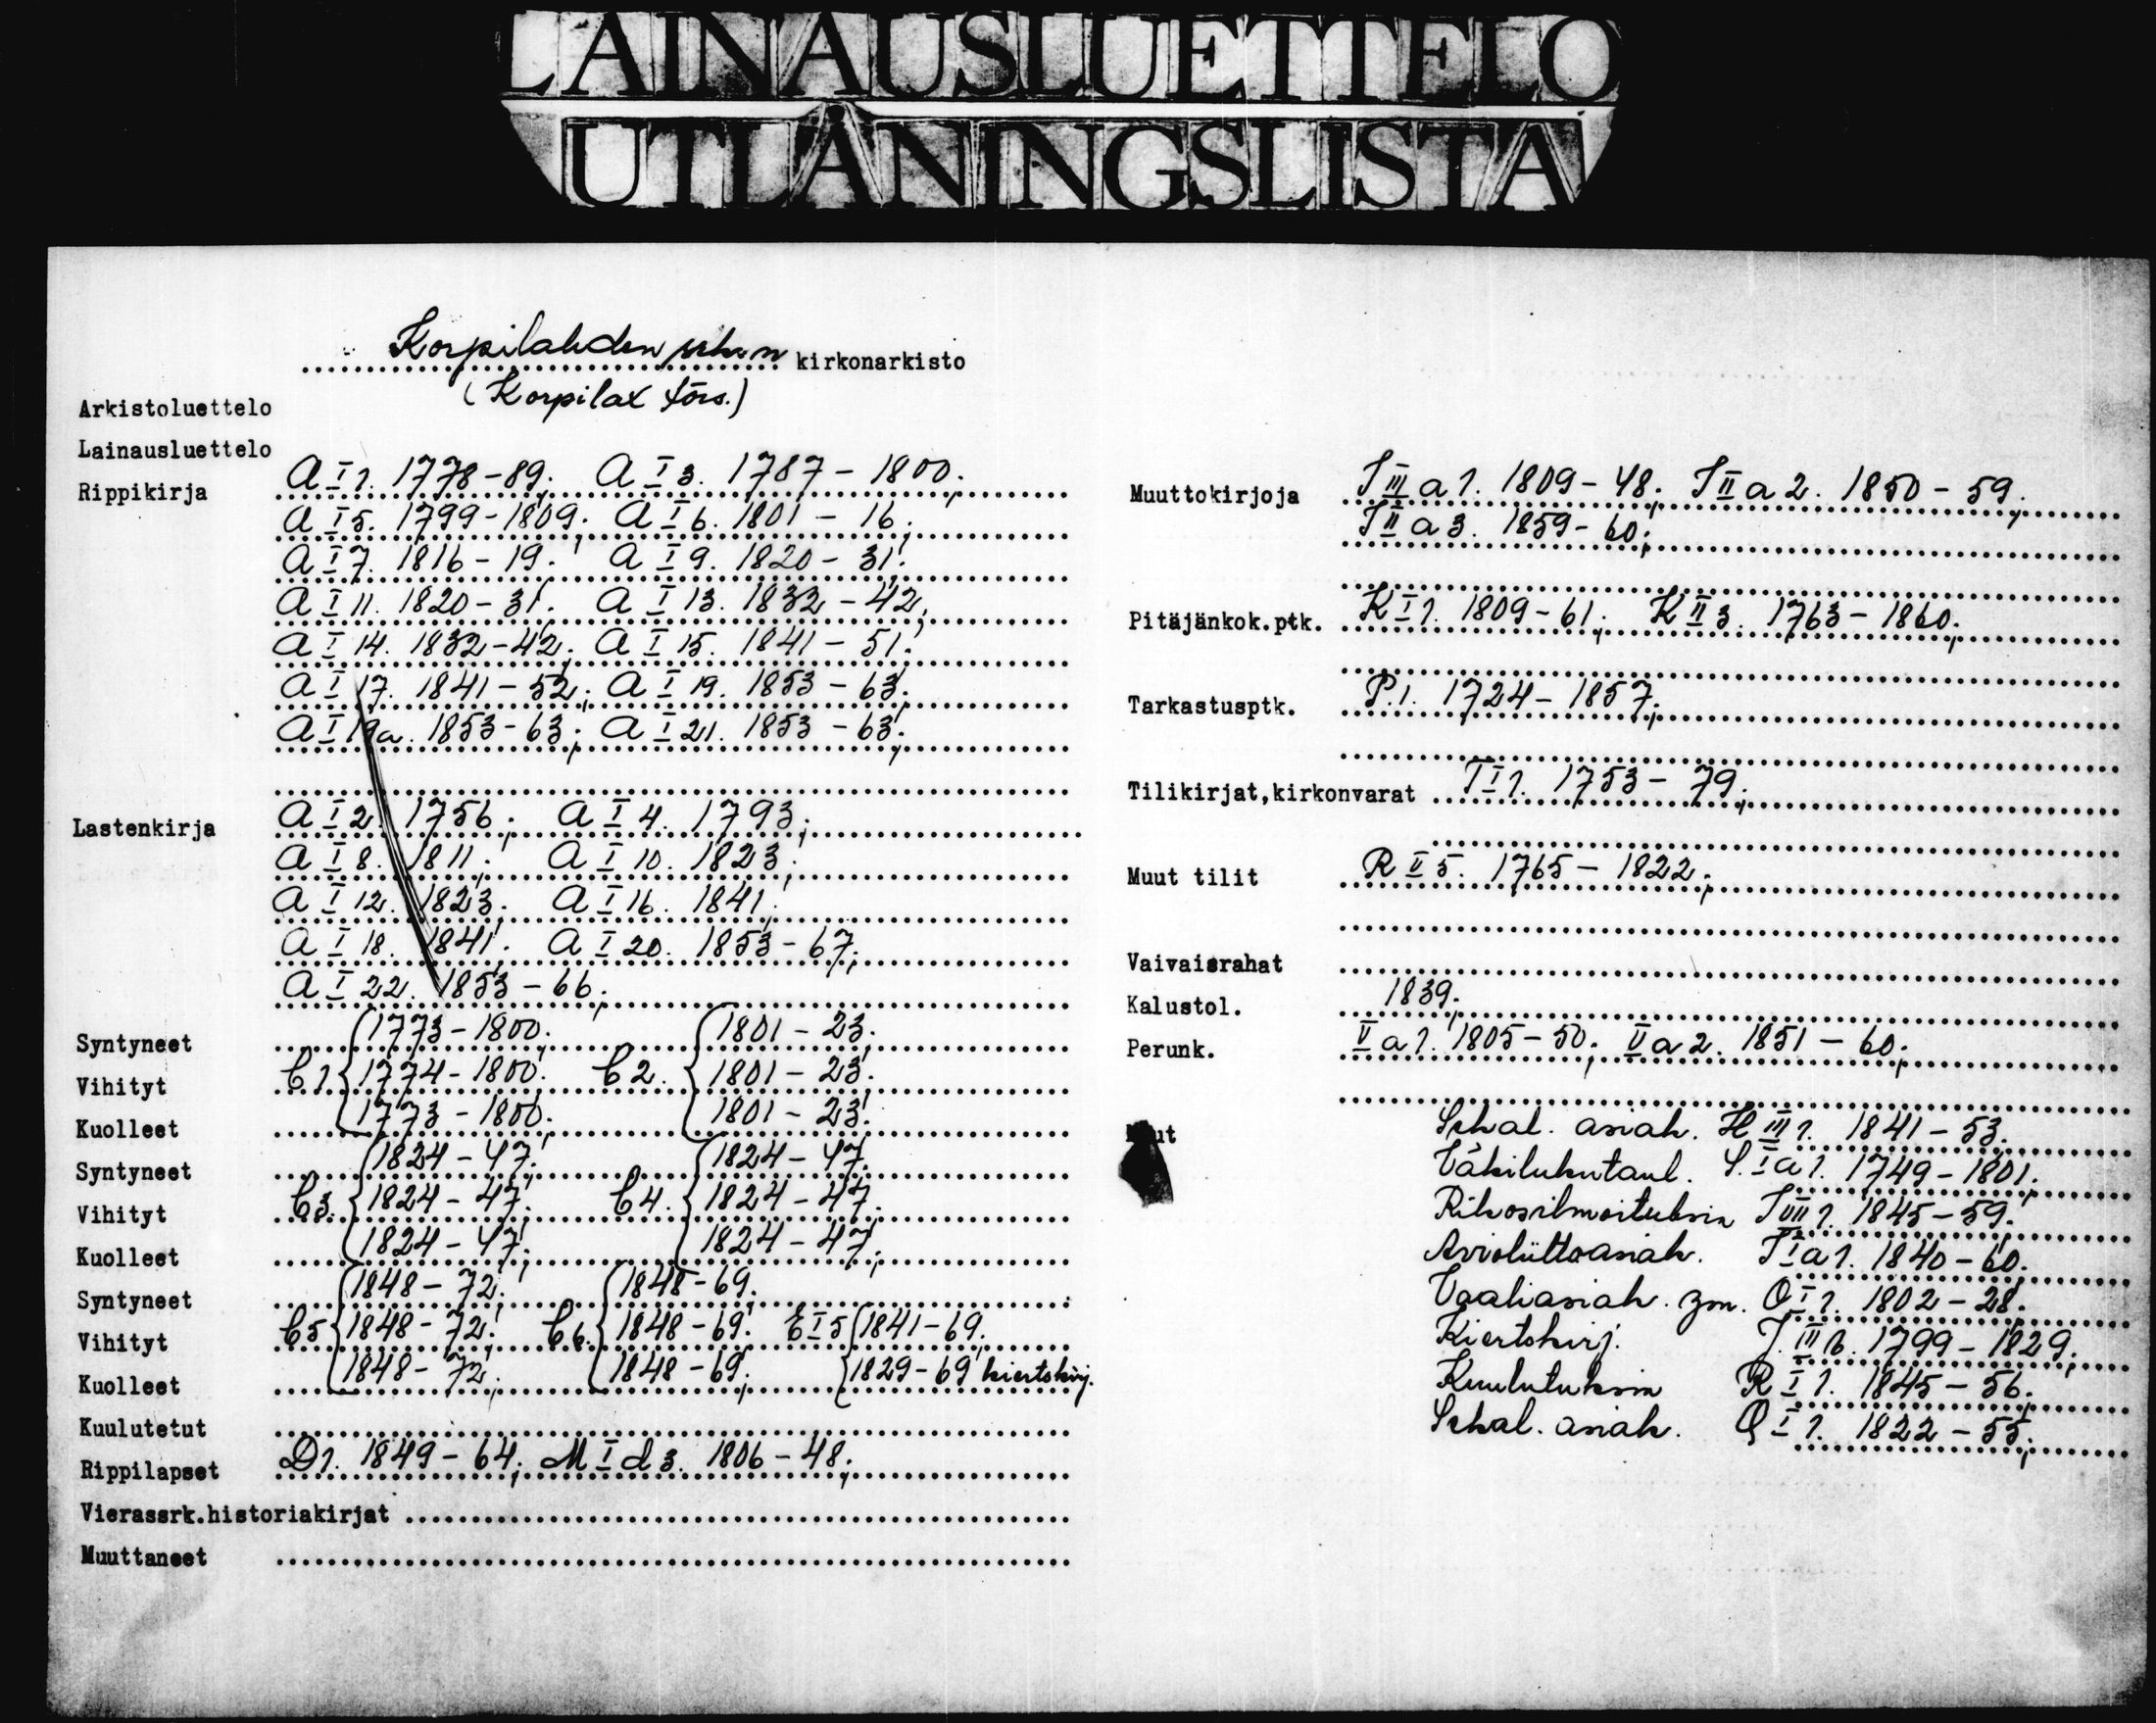 LAINAUSLUETTELO
UTLÅNINGSLISTA
Korpilahden srk:n kirkonarkisto
(Korpilax förs.)
Arkistoluettelo
Lainausluettelo
Rippikirja A I 1. 1778-89; A I 3. 1787-1800;
A I 5. 1799-1809; A I 6. 1801-16;
A I 7. 1816-19; A I 9. 1820-31;
A I 11. 1820-31; A I 13. 1832-42;
A I 14. 1832-42; A I 15. 1841-51;
A I 17. 1841-52; A I 19. 1853-63;
A I 19a. 1853-63; A I 21. 1853-63;
Lastenkirja A I 2. 1756; A I 4. 1793;
A I 8. 1811; A I 10. 1823;
A I 12. 1823; A I 16. 1841;
A I 18. 1841; A I 20. 1853-67;
A I 22. 1853-66;
Syntyneet 1773-1800; 1801-23;
Vihityt C 1. 1774-1800; C 2. 1801-23;
Kuolleet 1773-1800; 1801-23;
Syntyneet 1824-47; 1824-47;
Vihityt C 3. 1824-47; C 4. 1824-47;
Kuolleet 1824-47; 1824-47;
Syntyneet 1848-72; 1848-69;
Vihityt C 5 1848-72; C 6. 1848-69; E I 5 1841-69;
Kuolleet 1848-72; 1848-69; 1829-69 kiertokirj.
Kuulutetut
Rippilapset D 1. 1849-64; M I d 3. 1806-48;
Vierassrk.historiakirjat
Muuttaneet
Muuttokirjoja I III a 1. 1809-48; I II a 2. 1850-59;
I II a 3. 1859-60;
Pitäjänkok.ptk. K I 1. 1809-61; K II 3. 1763-1860;
Tarkastusptk. P. 1. 1724-1857;
Tilikirjat,kirkonvarat T I 1. 1753-79;
Muut tilit R II 5. 1765-1822;
Vaivaisrahat
Kalustol. 1839;
Perunk. V a 1. 1805-50; V a 2. 1851-60;
Sekal. asiak. H III 1. 1841-53;
Väkilukutaul. I a 1. 1749-1801;
Rikosilmoituksia I VII 1. 1845-59;
Avioliittoasiak. I I a 1. 1840-60;
Vaaliasiak. ym. O I 1. 1802-28;
Kiertokirj. J. III b. 1799-1829;
Kuulutuksia R I 1. 1845-56;
Sekal. asiak. Q I 1. 1822-55;